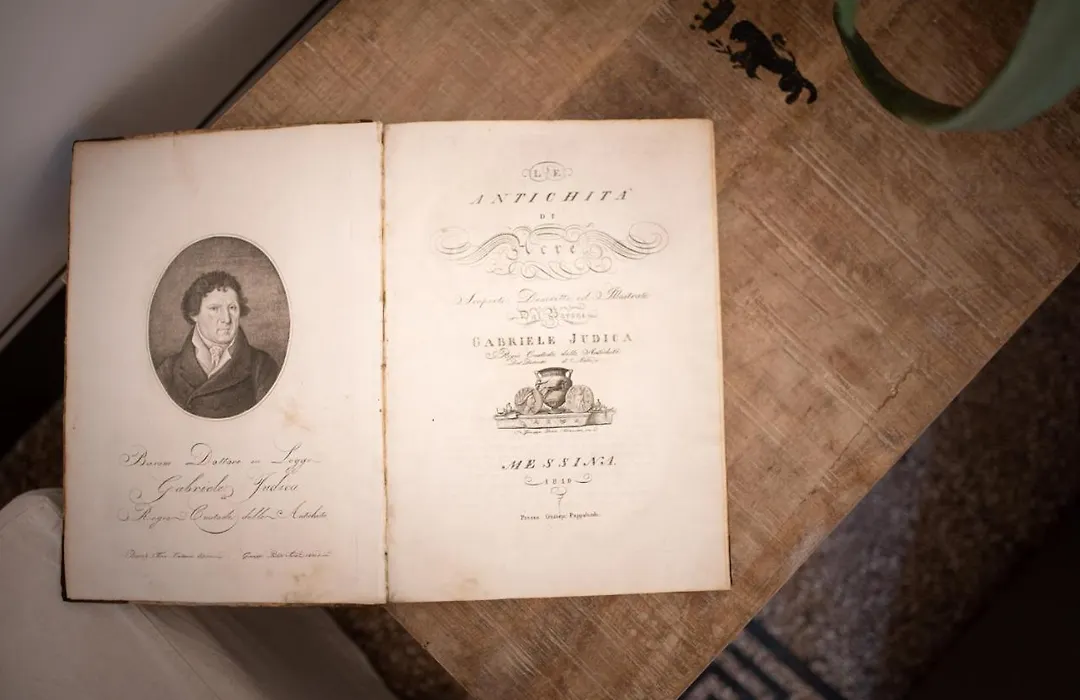 Barone Dottore in Legge
Gabriele Judica
Regio Custode delle Antichità
LE
ANTICHITÁ
DI
Acre
Scoperte Descritte ed Illustrate
Dal Barone
GABRIELE JUDICA
Regio Custode delle Antichità
MESSINA.
1819
Presso Giuseppe Pappalardo.